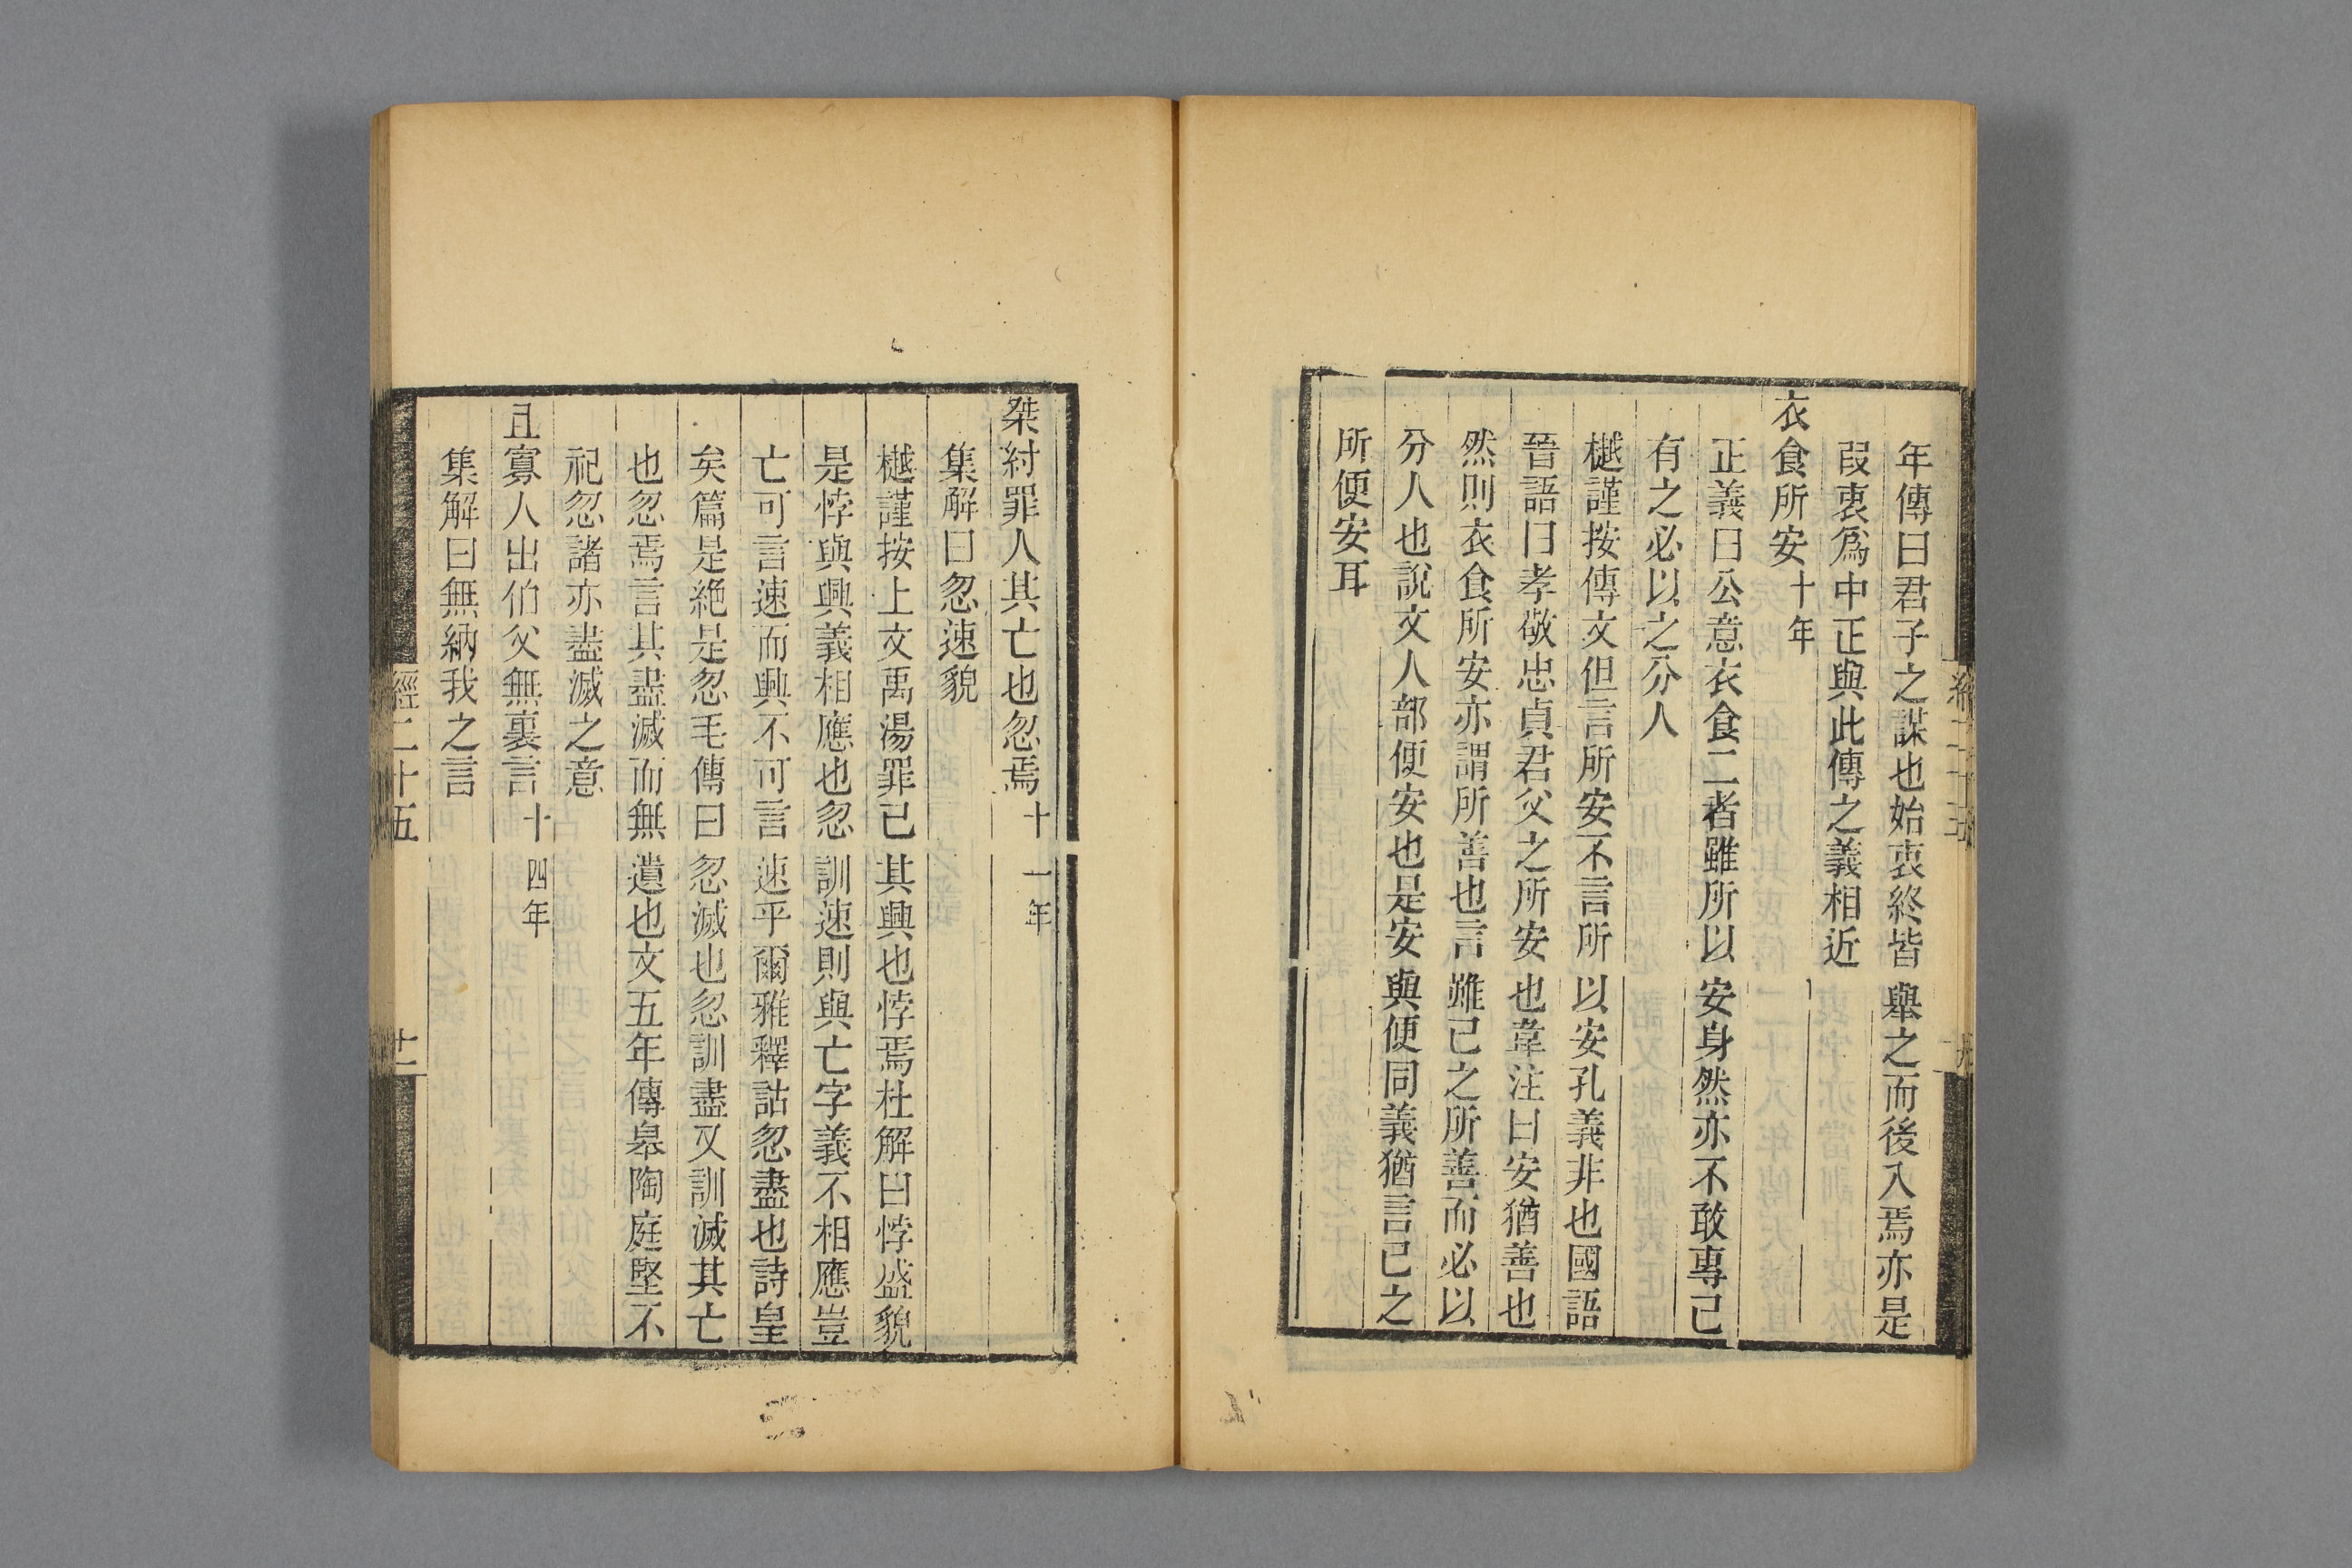 年傳曰君子之謀也始衷終皆舉之而後入焉亦是
叚衷爲中正與此傳之義相近
衣食所安十年
正義曰公意衣食二者雖所以安身然亦不敢專己
有之必以之分人
樾謹按傳文但言所安不言所以安孔義非也國語
晉語曰孝敬忠貞君父之所安也韋注曰安猶善也
然則衣食所安亦謂所善也言雖己之所善而必以
分人也說文人部便安也是安與便同義猶言己之
所便安耳
桀紂罪人其亡也忽焉十一年
集解曰忽速貌
樾謹按上文禹湯罪己其興也悖焉杜解曰悖盛貌
是悖與興義相應也忽訓速則與亡字義不相應豈
亡可言速而興不可言速乎爾雅釋詁忽盡也詩皇
矣篇是絶是忽毛傳曰忽滅也忽訓盡又訓滅其亡
也忽焉言其盡滅而無遺也文五年傳皋陶庭堅不
祀忽諸亦盡滅之意
且寡人出伯父無裏言十四年
集解曰無納我之言
經二十五